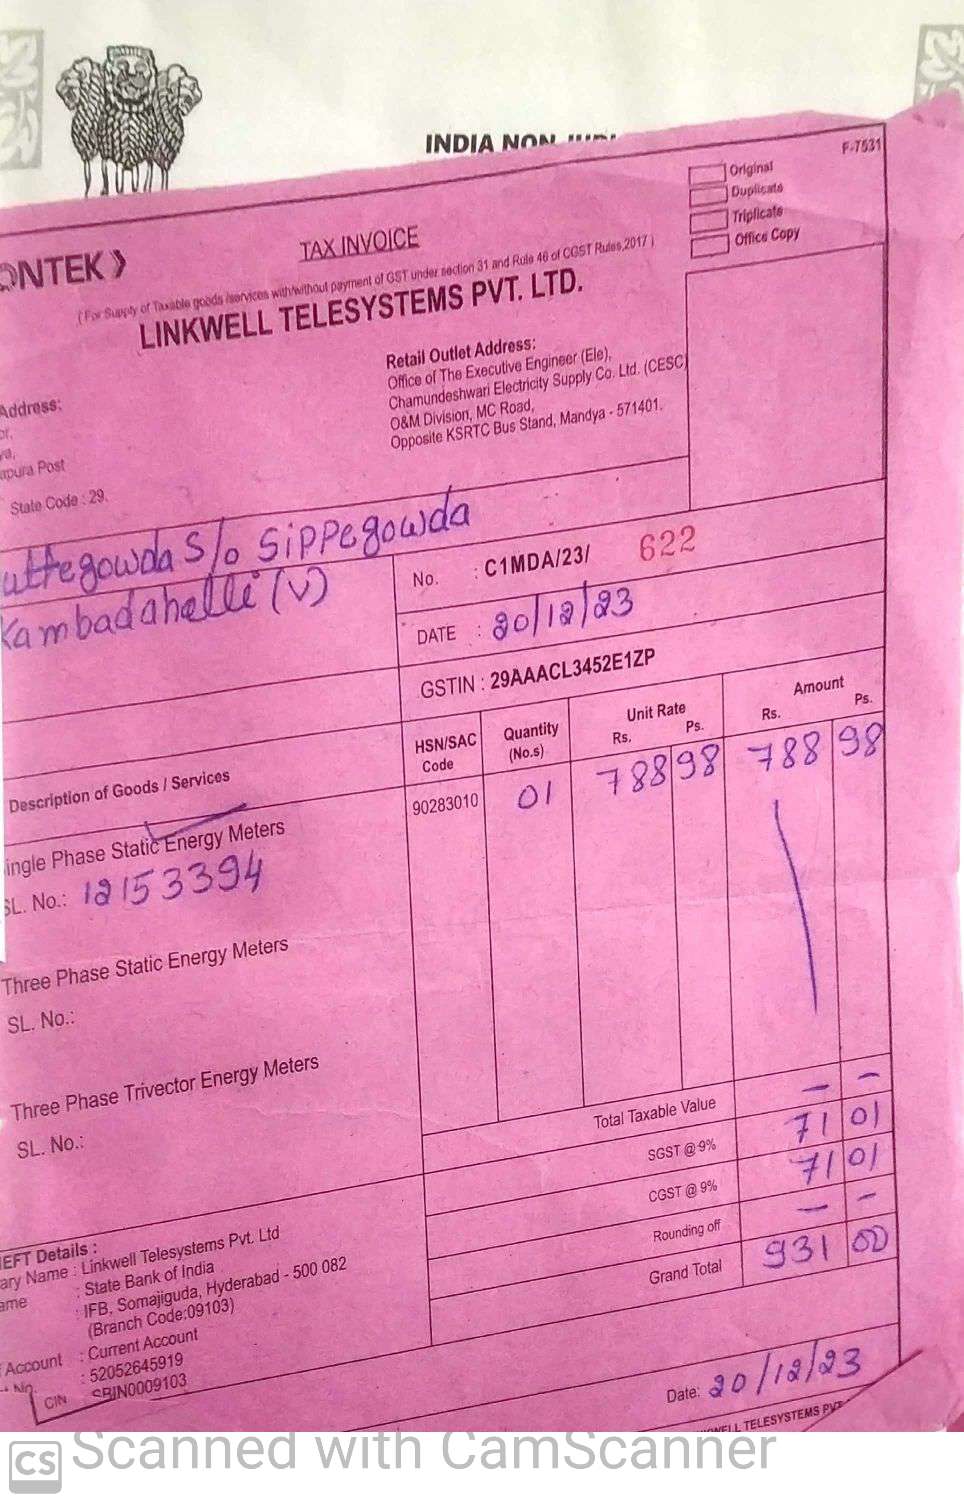 INDIA NON
F-7531
Original
Duplicate
Triplicate
Office Copy
ONTEK
TAX INVOICE
(For Supply of Taxable goods /services with/without payment of GST under section 31 and Rule 46 of CGST Rules,2017 )
LINKWELL TELESYSTEMS PVT. LTD.
Retail Outlet Address:
Office of The Executive Engineer (Ele),
Chamundeshwari Electricity Supply Co. Ltd. (CESC)
O&M Division, MC Road,
Opposite KSRTC Bus Stand, Mandya - 571401.
Address:
apura Post
State Code : 29.
uttegowda S/o Sippegowda
Kambadahalli (V)
No. : C1MDA/23/ 622
DATE : 20/12/23
GSTIN : 29AAACL3452E1ZP
Description of Goods / Services HSN/SAC Code Quantity (No.s) Unit Rate Rs. Ps. Amount Rs. Ps.
ingle Phase Static Energy Meters 90283010 01 788 98 788 98
SL. No.: 12153394
Three Phase Static Energy Meters
SL. No.:
Three Phase Trivector Energy Meters
SL. No.:
Total Taxable Value — —
SGST @ 9% 71 01
CGST @ 9% 71 01
Rounding off — —
Grand Total 931 00
EFT Details :
ary Name : Linkwell Telesystems Pvt. Ltd
ame : State Bank of India
: IFB, Somajiguda, Hyderabad - 500 082
(Branch Code:09103)
Account : Current Account
No. : 52052645919
SBIN0009103
CIN
Date: 20/12/23
WELL TELESYSTEMS PVT
CS Scanned with CamScanner